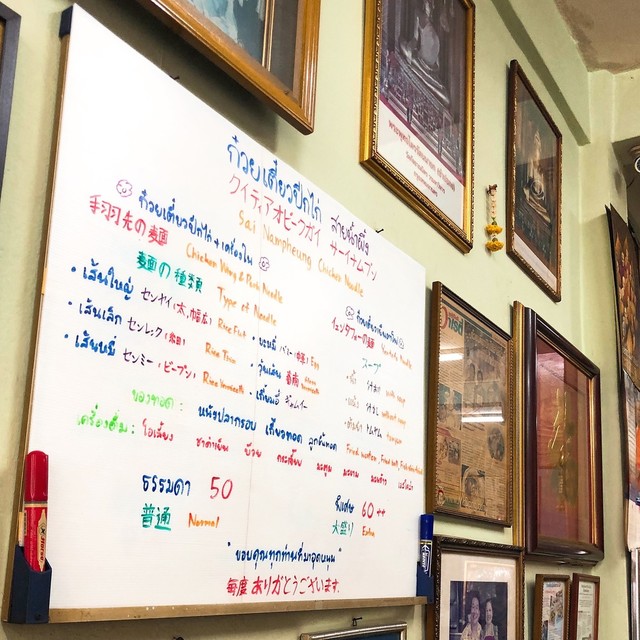 ก๋วยเตี๋ยวปีกไก่ สายน้ำผึ้ง
クイティアオピークガイ サーイナムプン
Sai Nampheung Chicken Noodle
ก๋วยเตี๋ยวปีกไก่ + เครื่องใน
手羽先の麺 Chicken Wing & Pork Noodle
麺の種類 Type of Noodle
• เส้นใหญ่ センヤイ(太、幅広) Rice Flat
• เส้นเล็ก センレック(細) Rice Thin
• เส้นหมี่ センミー(ビーフン) Rice Vermicelli
• บะหมี่ バミー Egg
• วุ้นเส้น 春雨
• เกี๊ยมอี๋
スープ
汁あり with soup
汁なし without soup
トムヤム tomyum
ของทอด : หนังปลากรอบ เกี๊ยวทอด ลูกชิ้นทอด
เครื่องดื่ม : โอเลี้ยง ชาดำเย็น บ๊วย กระเจี๊ยบ มะตูม มะขาม มะพร้าว
ธรรมดา 50
普通 Normal
พิเศษ 60 ++
大盛り Extra
"ขอบคุณทุกท่านที่มาอุดหนุน"
毎度ありがとうございます。